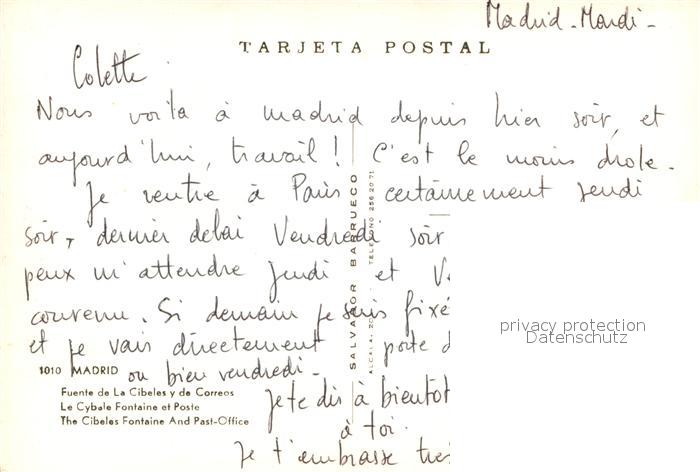 Madrid - Mardi -
TARJETA POSTAL
Colette
Nous voila à madrid depuis hier soir, et
aujourd'hui, travail ! C'est le moins drole.
Je rentre à Paris certainement Jeudi
soir, dernier delai Vendredi soir
peux m'attendre Jeudi et
convenu. Si demain je suis fixé
et je vais directement porte
ou bien vendredi -
Je te dis à bientot
à toi.
Je t'embrasse
1010 MADRID
Fuente de La Cibeles y de Correos
Le Cybale Fontaine et Poste
The Cibeles Fontaine And Past-Office
SALVADOR BARRUECO
TELEFONO 256 20 71
privacy protection
Datenschutz